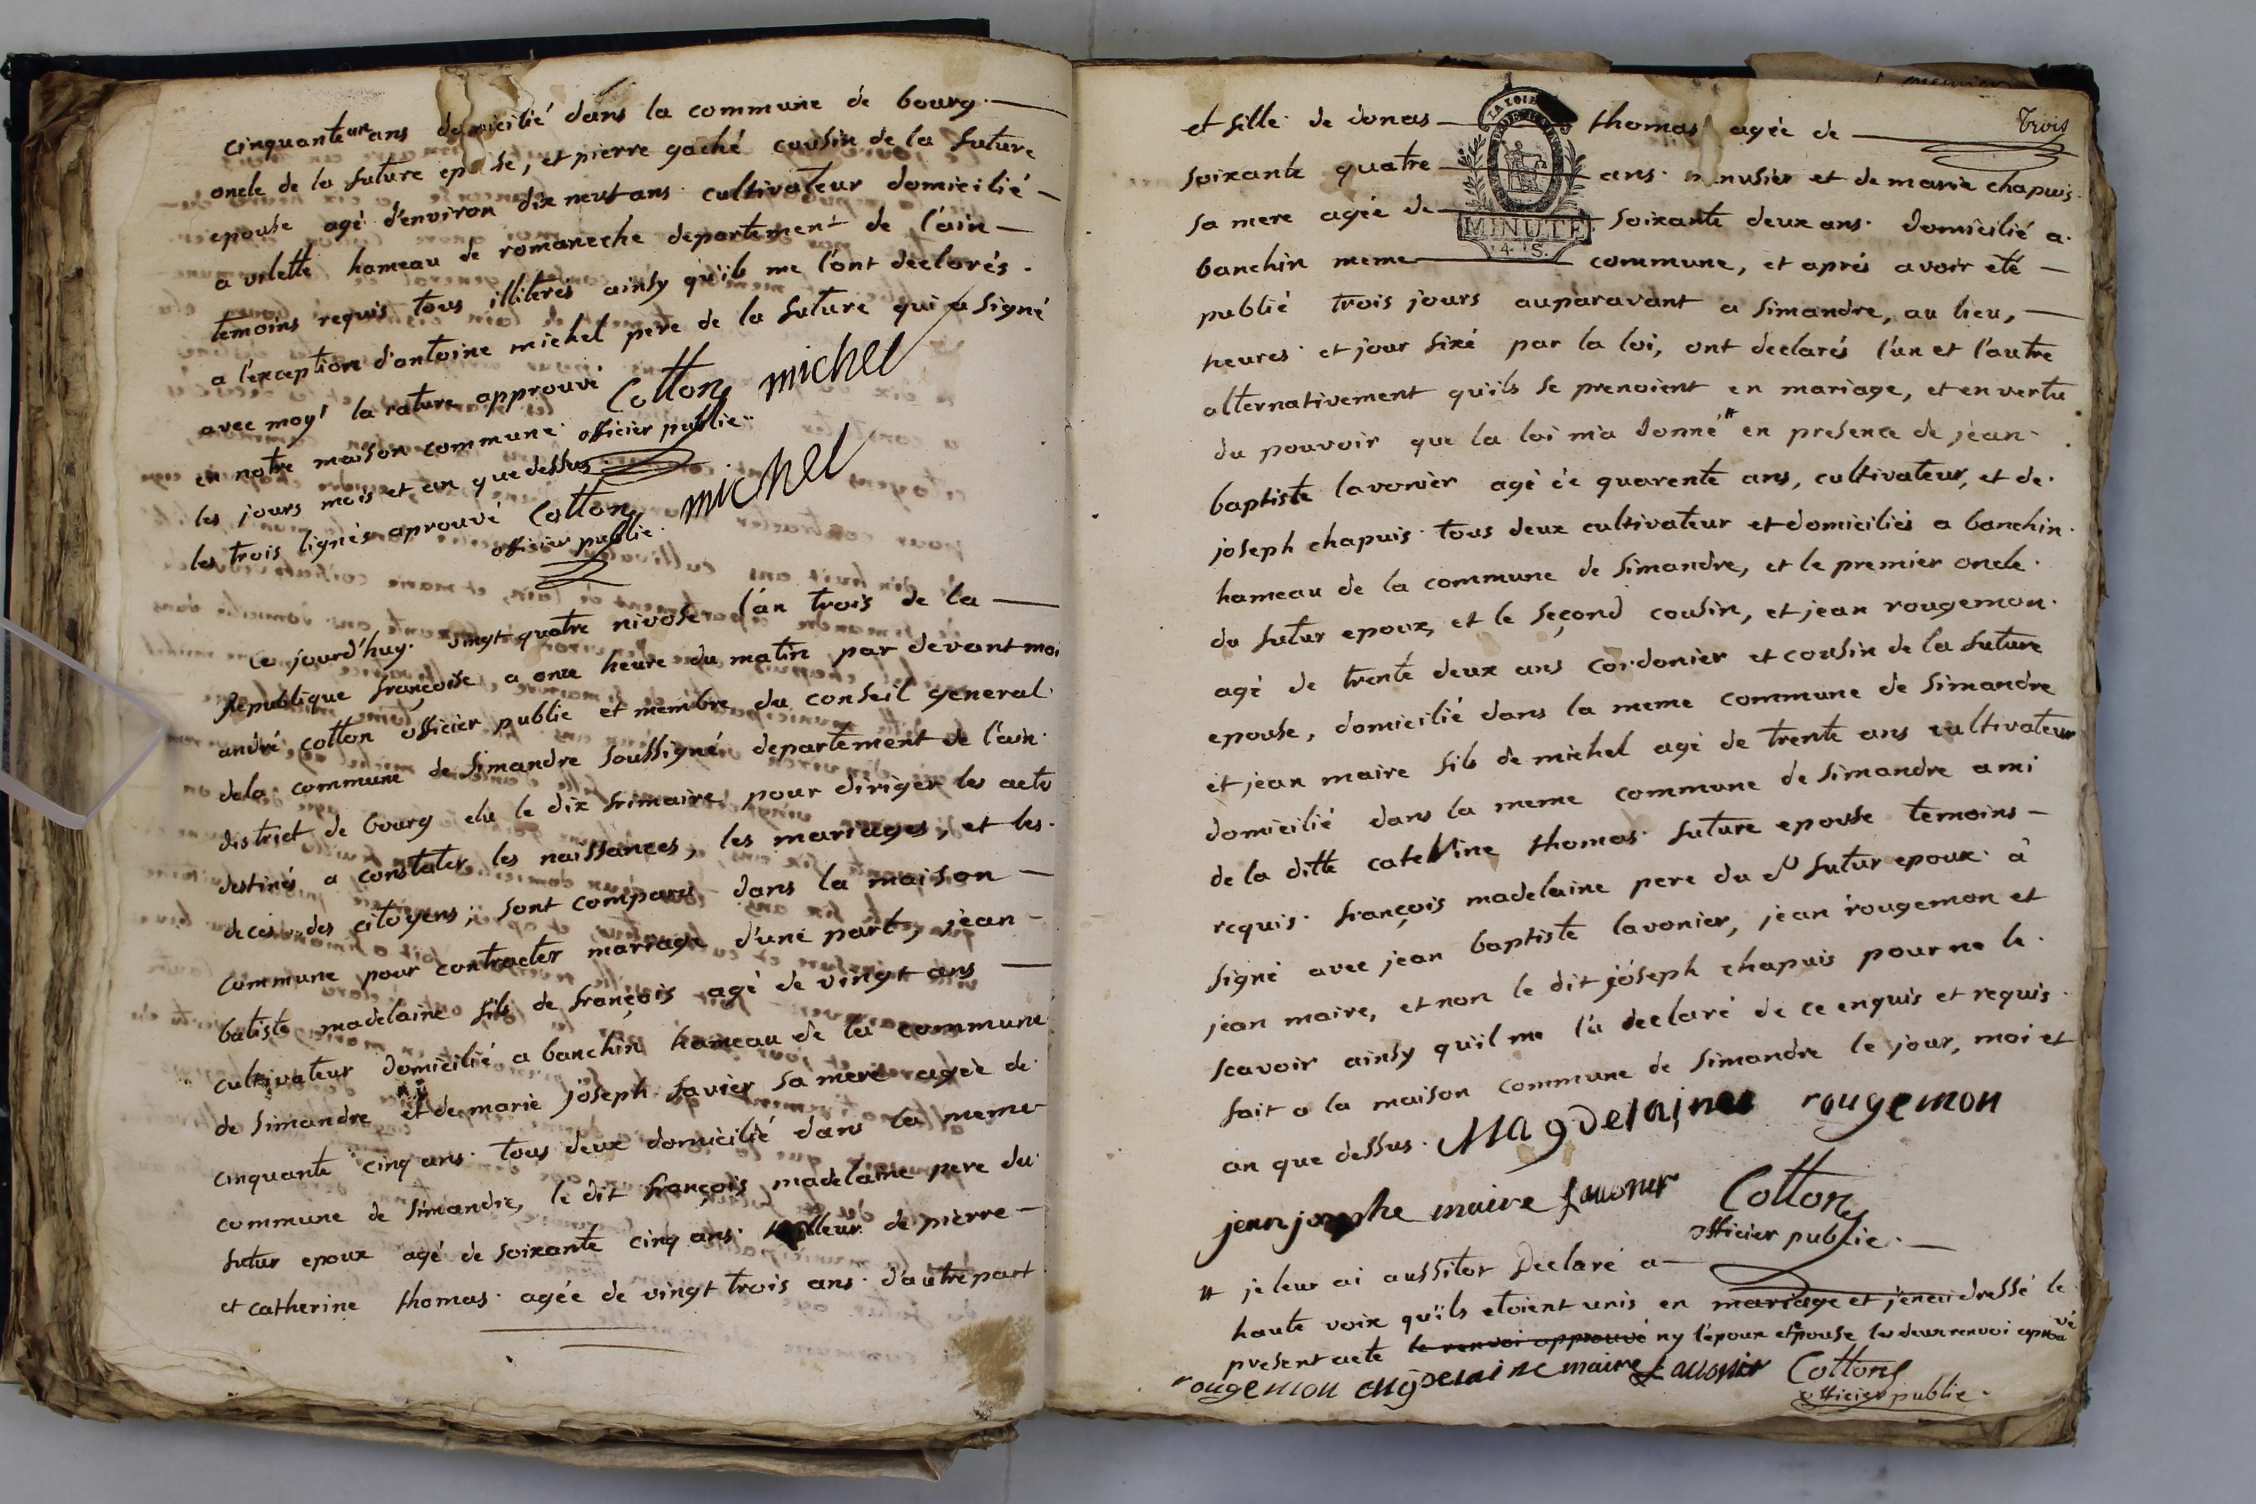 cinquante un ans domicilié dans la commune de bourg.
oncle de la future epouse, et pierre gaché cousin de la future
epouse agé d'environ dix neuf ans cultivateur domicilié
a vilette hameau de romaneche departement de l'ain
temoins requis tous illiterés ainsy qu'ils me l'ont declarés.
a l'exception d'antoine michel pere de la future qui a signé
avec moy la rature approuvé Cotton michel
en notre maison commune. officier public
les jours mois et an que dessus
les trois lignes aprouvé Cotton michel
officier public
Ce jourd'huy. vingt quatre nivose l'an trois de la
Republique françoise a onze heure du matin par devant moi
andré cotton officier public et membre du conseil general.
dela commune de Simandre soussigné departement de l'ain.
district de bourg elu le dix frimaire pour diriger les actes
destinés a constater les naissances, les mariages, et les.
deces des citoyens; sont comparus dans la maison
commune pour contracter marriage d'une part, jean
batiste madelaine fils de françois agé de vingt ans
cultivateur domicilié a banchin hameau de la commune
de Simandre et de marie joseph favier sa mere agée de
cinquante cinq ans. tous deux domicilié dans la meme
commune de Simandre, le dit françois madelaine pere du
futur epoux agé de soixante cinq ans. tailleur de pierre
et catherine thomas. agée de vingt trois ans. d'autre part
trois
et fille de donas thomas agée de
LA LOI
soixante quatre ans. menusier et de marie chapuis.
sa mere agée de soixante deux ans. domicilié a.
MINUTE
4 S.
banchin meme commune, et aprés avoir eté
publié trois jours auparavant a Simandre, au lieu,
heures et jour fixé par la loi, ont declarés l'un et l'autre
alternativement qu'ils se prenoient en mariage, et en vertu
du pouvoir que la loi m'a donné # en presence de jean.
baptiste lavonier agé de quarente ans, cultivateur, et de.
joseph chapuis. tous deux cultivateur et domiciliés a banchin.
hameau de la commune de Simandre, et le premier oncle.
du futur epoux, et le second cousin, et jean rougemon.
agé de trente deux ans cordonier et cousin de la future
epouse, domicilié dans la meme commune de Simandre
et jean maire fils de michel agé de trente ans cultivateur
domicilié dans la meme commune de Simandre ami
de la ditte catherine thomas. future epouse temoins
requis. françois madelaine pere du futur epoux. a
signé avec jean baptiste lavonier, jean rougemon et
jean maire, et non le dit joseph chapuis pour ne le.
scavoir ainsy qu'il me l'a declaré de ce enquis et requis.
fait a la maison commune de Simandre le jour, moi et
an que dessus. Magdelaine rougemon
jean josephe maire Lavonier Cotton
officier public.
# je leur ai aussitot declaré a
haute voix qu'ils etoient unis en mariage et j'en ai dressé le
present acte le renvoi approuvé ny l'epoux et epouse les deux renvoi aprouvé
rougemon magdelaine maire Lavonier Cotton
officier public.